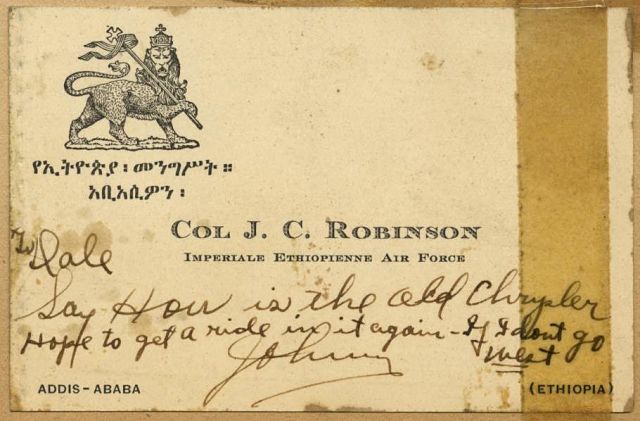 የኢትዮጵያ ፡ መንግሥት ።
አቢአሲዎን ፡
COL J. C. ROBINSON
IMPERIALE ETHIOPIENNE AIR FORCE
To Dale
Say How is the old Chrysler
Hope to get a ride in it again - If I dont go
West
Johnny
ADDIS-ABABA
(ETHIOPIA)